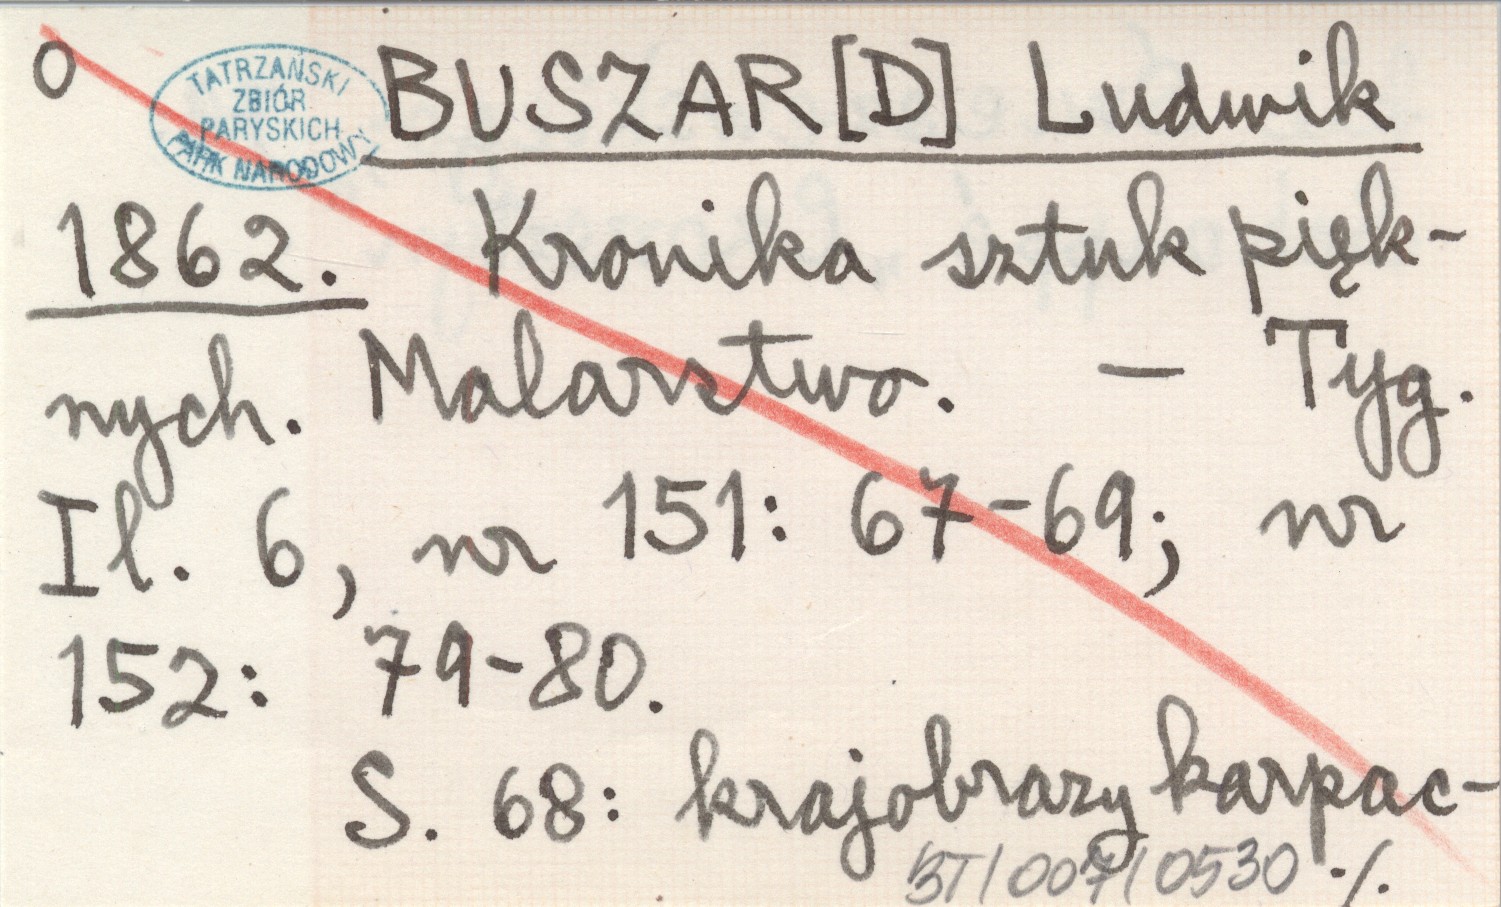 O
TATRZAŃSKI
ZBIÓR
PARYSKICH
PARK NARODOWY
BUSZAR[D] Ludwik
1862. Kronika sztuk pięk-
nych. Malarstwo. — Tyg.
Il. 6, nr 151: 67-69; nr
152: 79-80.
S. 68: krajobrazy karpac-
BT/007/0530 ./.